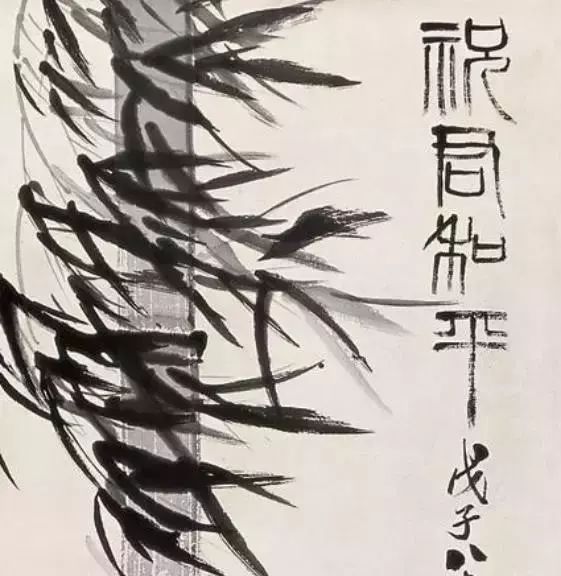 祝君和平
戊子八